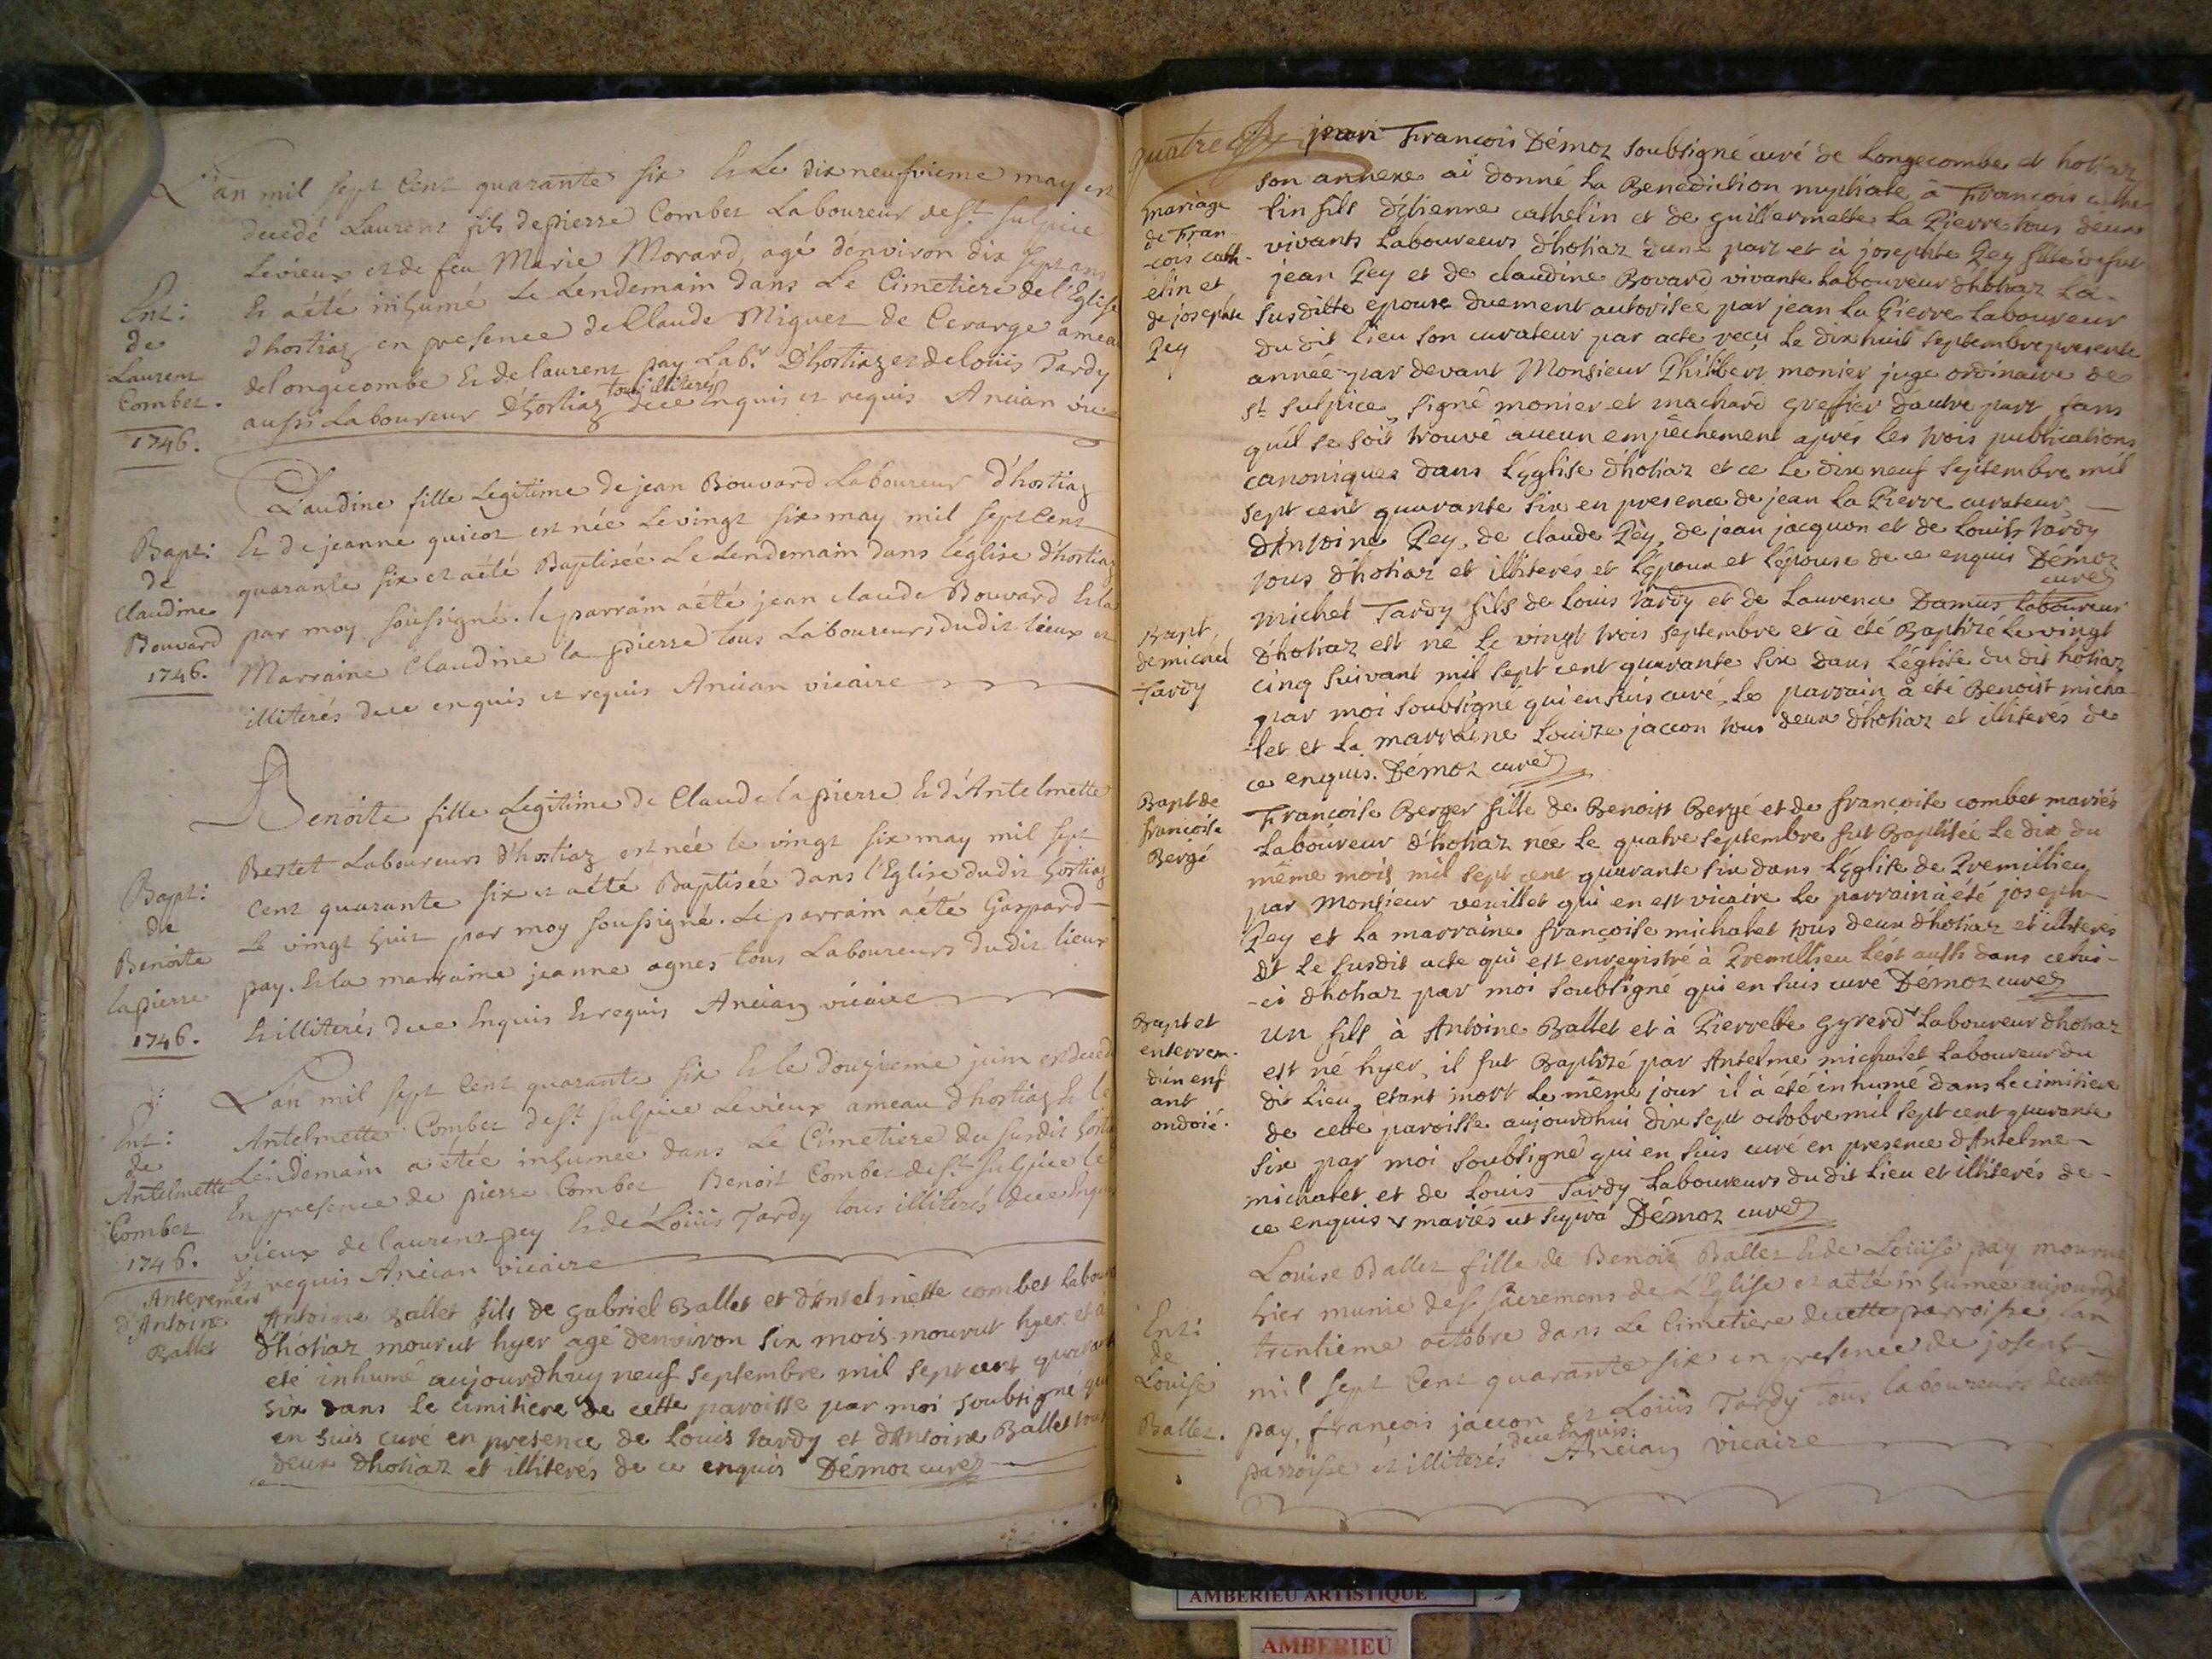 L'an mil sept Cent quarante six Et Le dix neufvieme may est
decedé Laurent fils de pierre Combet Laboureur de st sulpice
Levieux et de feu Marie Morard, agé d'environ dix sept ans
Et aété inhumé Le Lendemain dans Le Cimetiere de l'Eglise
d'hostiaz en presence de Claude Miguet de Cerarge amea
de longecombe Et de laurent pay Lab.r D'hostiaz et de loüis Tardy
aussi Laboureur d'hostiaz tous illiteres dece Enquis et requis Ancian vic
Ent:
de
Laurent
Combet.
1746.
Claudine fille Legitime de jean Bouvard Laboureur D'hostiaz
Et de jeanne guicot est née Le vingt six may mil sept Cent
quarante six et aété Baptisée Le Lendemain dans l'église d'hostiaz
par moy soussigné. le parrain aété jean claude Bouvard Et la
Marraine Claudine la pierre tous Laboureurs dudit lieux et
illiterés dece enquis et requis Ancian vicaire
Bapt:
de
Claudine
Bouvard
1746.
Benoite fille Legitime de Claude lapierre Et d'Antelmette
Bestet Laboureurs d'hostiaz est née le vingt six may mil sept
Cent quarante six et aété Baptisée dans l'Eglise dudit hostiaz
Le vingt huit par moy soussigné. Le parrain aété Gaspard
pay. Et la marraine jeanne agnes tous Laboureurs dudit lieux
Et illiterés dece Enquis Et requis Ancian vicaire
Bapt:
de
Benoite
lapierre
1746.
L'an mil sept Cent quarante six Et le douzieme juin est deced
Antelmette Combet de st sulpice Levieux ameau d'hostiaz Et le
Lendemain a étée inhumée dans Le Cimetiere du susdit hostia
En presence de pierre Combet Benoit Combet de st sulpice le
vieux de laurent pey Et de Loüis Tardy tous illiterés dece Enquis
Et requis Ancian vicaire
Ent:
de
Antelmette
Combet
1746.
Anterement
d'Antoine
Ballet
Antoine Ballet fils de gabriel Ballet et d'Antelmette combet labour
d'hotiaz mourut hyer agé denviron six mois mourut hyer et a
été inhumé aujourdhuy neuf septembre mil sept cent quarant
six dans le cimitiere de cette paroisse par moi soubsigné qui
en suis curé en presence de Louis tardy et d'Antoine Ballet tous
deux d'hotiaz et illiterés de ce enquis Démoz curé
quatre
jeari François Démoz soubsigné curé de Longecombe et hotiaz
son annexe ai donné la Benediction nuptiale à François cathe-
lin fils d'Etienne cathelin et de guillermette la Pierre tous deux
vivants laboureurs d'hotiaz dune part et à josephte Pey fille defut
jean Pey et de claudine Bovard vivante laboureur d'hotiaz La-
susditte epouse duement autorisée par jean la Pierre laboureur
du dit lieu son curateur par acte reçu le dix huit septembre presente
année par devant Monsieur Philibert monier juge ordinaire de
st sulpice, signé monier et machard greffier dautre part sans
qu'il se soit trouvé aucun empêchement aprés les trois publications
canoniques dans l'Eglise d'hotiaz et ce le dix neuf septembre mil
sept cent quarante six en presence de jean la Pierre curateur
d'Antoine Pey, de claude Pey, de jean jacquon et de Louis tardy
tous d'hotiaz et illiterés et l'Epoux et l'épouse de ce enquis Démoz
curé
mariage
de Fran-
-cois cath-
elin et
de josephte
Pey
michel Tardy fils de Louis tardy et de Laurence Damus laboureur
d'hotiaz est né le vingt trois septembre et à été Baptizé le vingt
cinq suivant mil sept cent quarante six dans l'église du dit hotiaz
par moi soubsigné qui en suis curé, le parrain a été Benoist micha-
let et la marraine Louize jaccon tous deux d'hotiaz et illiterés de
ce enquis. Démoz curé
Bapt.
de michel
Tardy
Françoise Berger fille de Benoist Bergé et de françoise combet mariés
laboureur d'hotiaz née le quatre septembre fut Baptisée le dix du
même mois mil sept cent quarante six dans l'Eglise de Premillieu
par Monsieur veuillet qui en est vicaire le parrain à été joseph
Pey et la marraine françoise michalet tous deux d'hotiaz et illiterés
et le susdit acte qui est enregistré à Premillieu lést aussi dans celui-
-ci d'hotiaz par moi soubsigné qui en suis curé Démoz curé
Bapt de
françoise
Bergé
un fils à Antoine Ballet et à Pierrette Gyrerd laboureur dhotiaz
est né hyer, il fut Baptizé par Antelme michalet laboureur du
dit lieu, etant mort le même jour il à été inhumé dans le cimitiere
de cette paroisse aujourdhui dix sept octobre mil sept cent quarante
six par moi soubsigné qui en suis curé en presence d'Antelme
michalet et de Louis Tardy laboureurs du dit lieu et illiterés de-
ce enquis mariés ut supra Démoz curé
Bapt et
enterrem-
d'un enf
ant
ondoié.
Louise Ballet fille de Benoit Ballet Et de Loüise pay mourut
hier munie des sacremens de L'Eglise et aété inhumée aujourdh
trentieme octobre dans Le Cimetiere decette parroisse, l'an
mil sept Cent quarante six en presence de joseph
pay, françois jaccon et Loüis Tardy tous laboureurs decette
parroisse et illiterés dece Enquis. Ancian vicaire
Ent:
de
Louise
Ballet.
AMBERIEU ARTISTIQUE
AMBERIEU